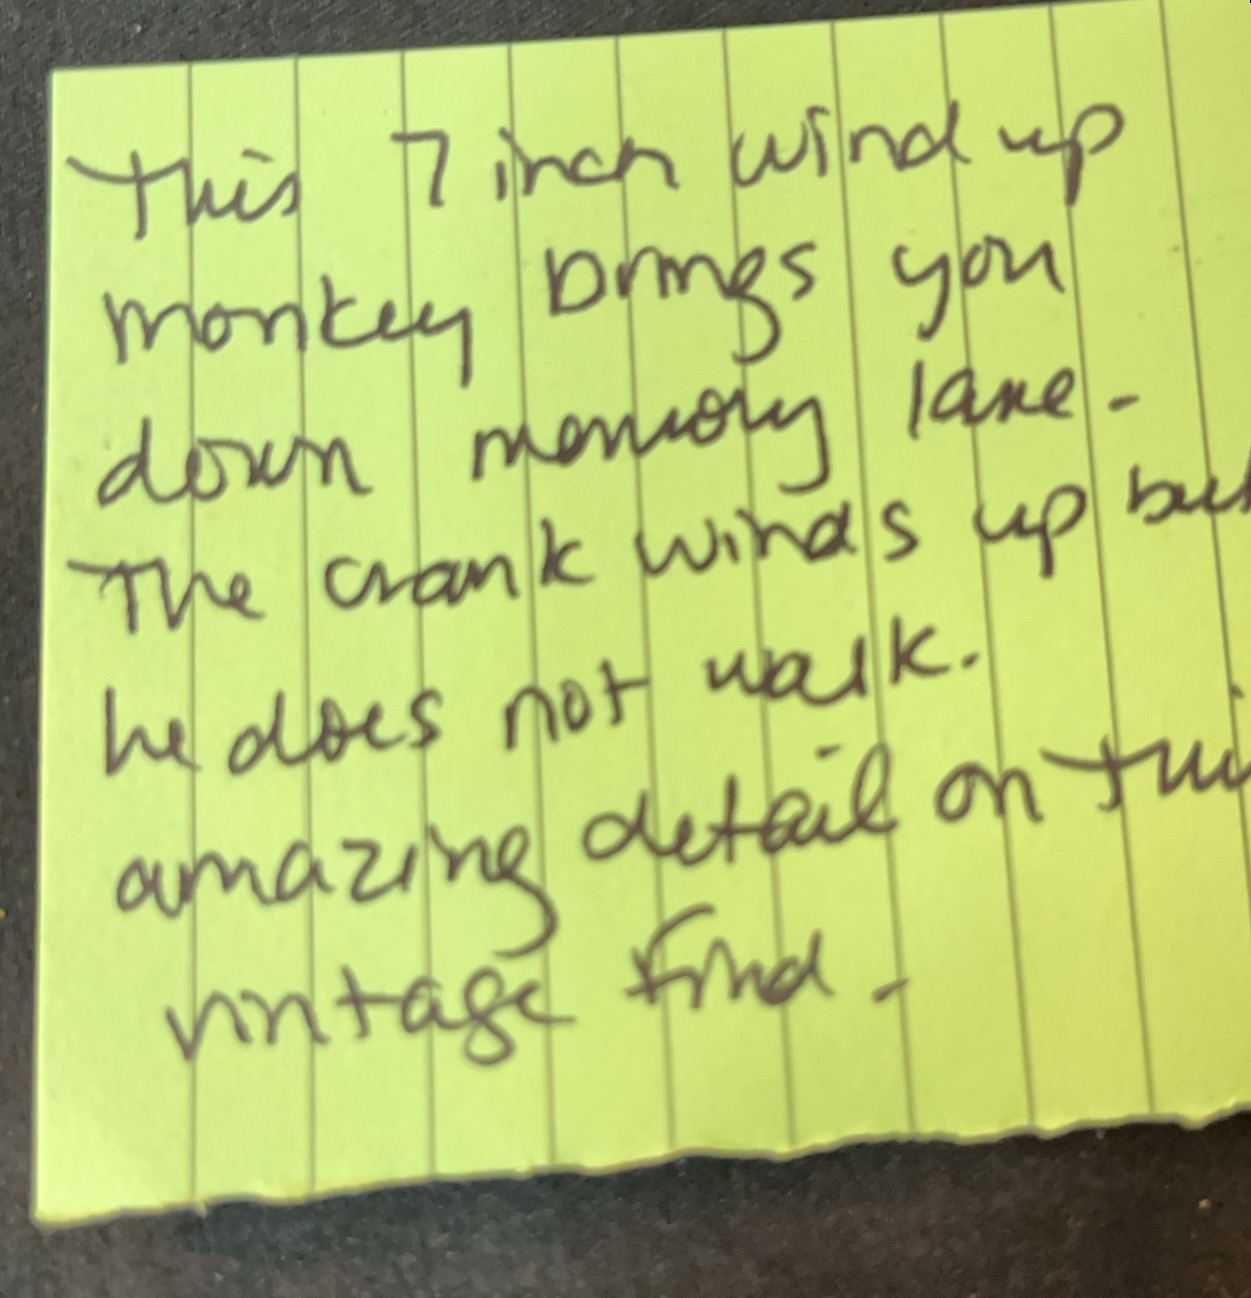 This 7 inch wind up
monkey brings you
down memory lane -
The crank winds up but
he does not walk.
amazing detail on this
vintage find -